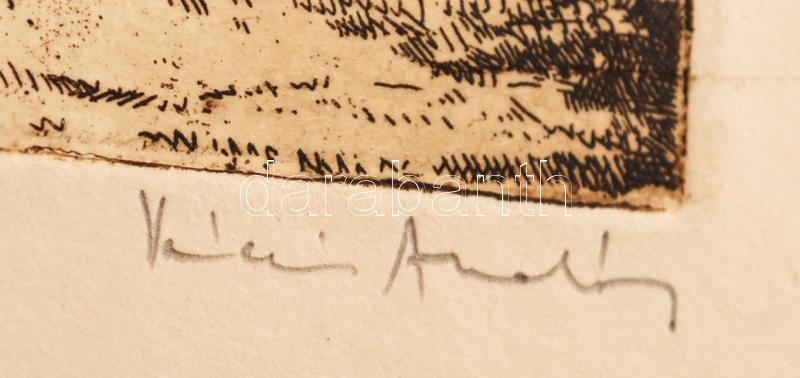 darabanth
Váci András